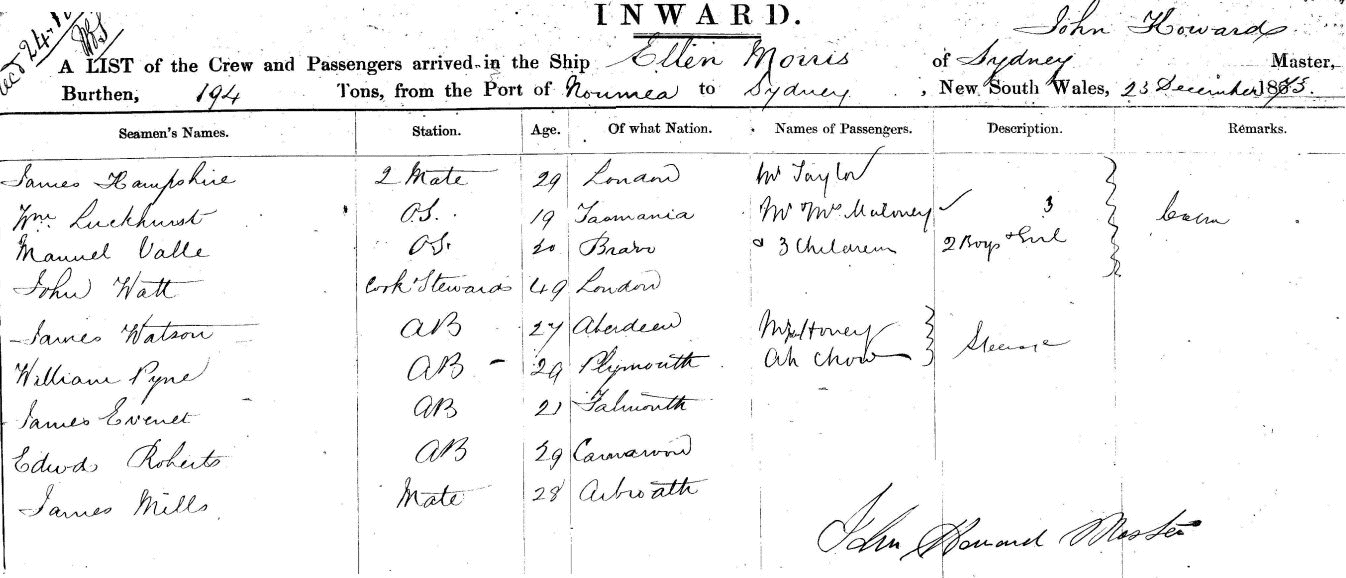 Recd 24.
INWARD.
John Howard
A LIST of the Crew and Passengers arrived in the Ship Ellen Morris of Sydney Master,
Burthen, 194 Tons, from the Port of Noumea to Sydney, New South Wales, 23 December 1875.
Seamen's Names. Station. Age. Of what Nation. Names of Passengers. Description. Remarks.
James Hampshire 2 Mate 29 London Mr Taylor
Wm Luckhurst O.S. 19 Tasmania Mr Mrs Maloney 3 Cabin
Manuel Valle O.S. 20 Bravo & 3 Children 2 Boys & Girl
John Watt Cook & Steward 49 London
James Watson AB 27 Aberdeen Honey
William Pyne AB 29 Plymouth Ah Chow Steerage
James Evenet AB 21 Falmouth
Edwd Roberts AB 29 Carnarvon
James Mills Mate 28 Arbroath
John Howard Master